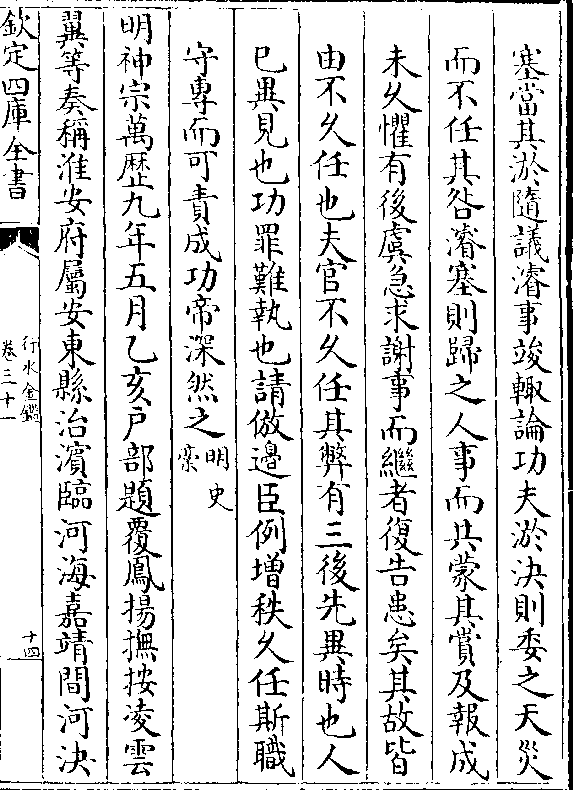 塞當其淤隨議濬事竣輙論功夫淤決則委之天災
而不任其咎濬塞則歸之人事而共蒙其賞及報成
未久懼有後虞急求謝事而繼者復告患矣其故皆
由不久任也夫官不久任其弊有三後先異時也人
已異見也功罪難執也請倣邊臣例增秩久任斯職
守専而可責成功帝深然之明史
稾
明神宗萬歷九年五月乙亥戸部題覆鳳揚撫按凌雲
翼等奏稱淮安府屬安東縣治濱臨河海嘉靖間河決
欽定四庫全書
行水金鑑
卷三十一
十四